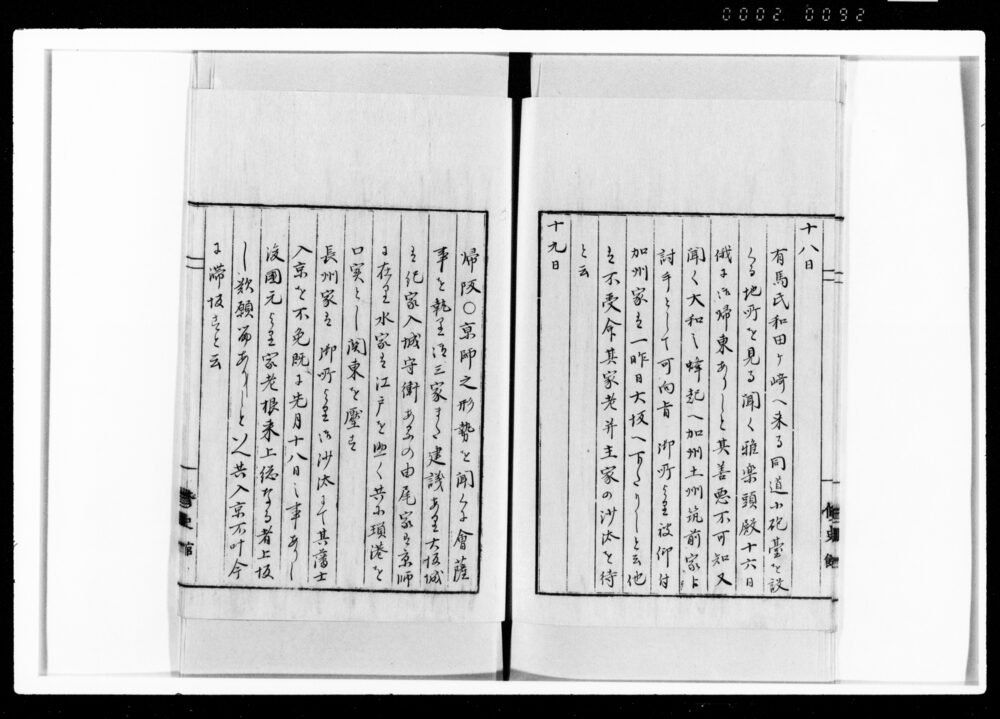 0002 0092
十八日
有馬氏和田ヶ崎へ来る同道小砲臺を設
くる地所を見る聞く雅楽頭殿十六日
俄に御帰東ありしと其善悪不可知又
聞く大和之蜂起へ加州土州筑前家より
討手として可向旨御所より被仰付
加州家は一昨日大坂へ下りしと云他
は不受命其家老并主家の沙汰を待
と云
十九日
修史館
帰阪〇京師之形勢を聞くに會薩
事を執り活三家また建議あり大坂城
は紀家入城守衛あるの由尾家は京師
に在り水家は江戸を 共に鎖港を
口実とし関東を壓す
長州家は御所より御沙汰にて其藩士
入京を不免既に先月十八日之事あり
後國元より家老根来上総なる者上坂
し歎願 ありしと 共入京不叶今
に滞坂すと云
修史館